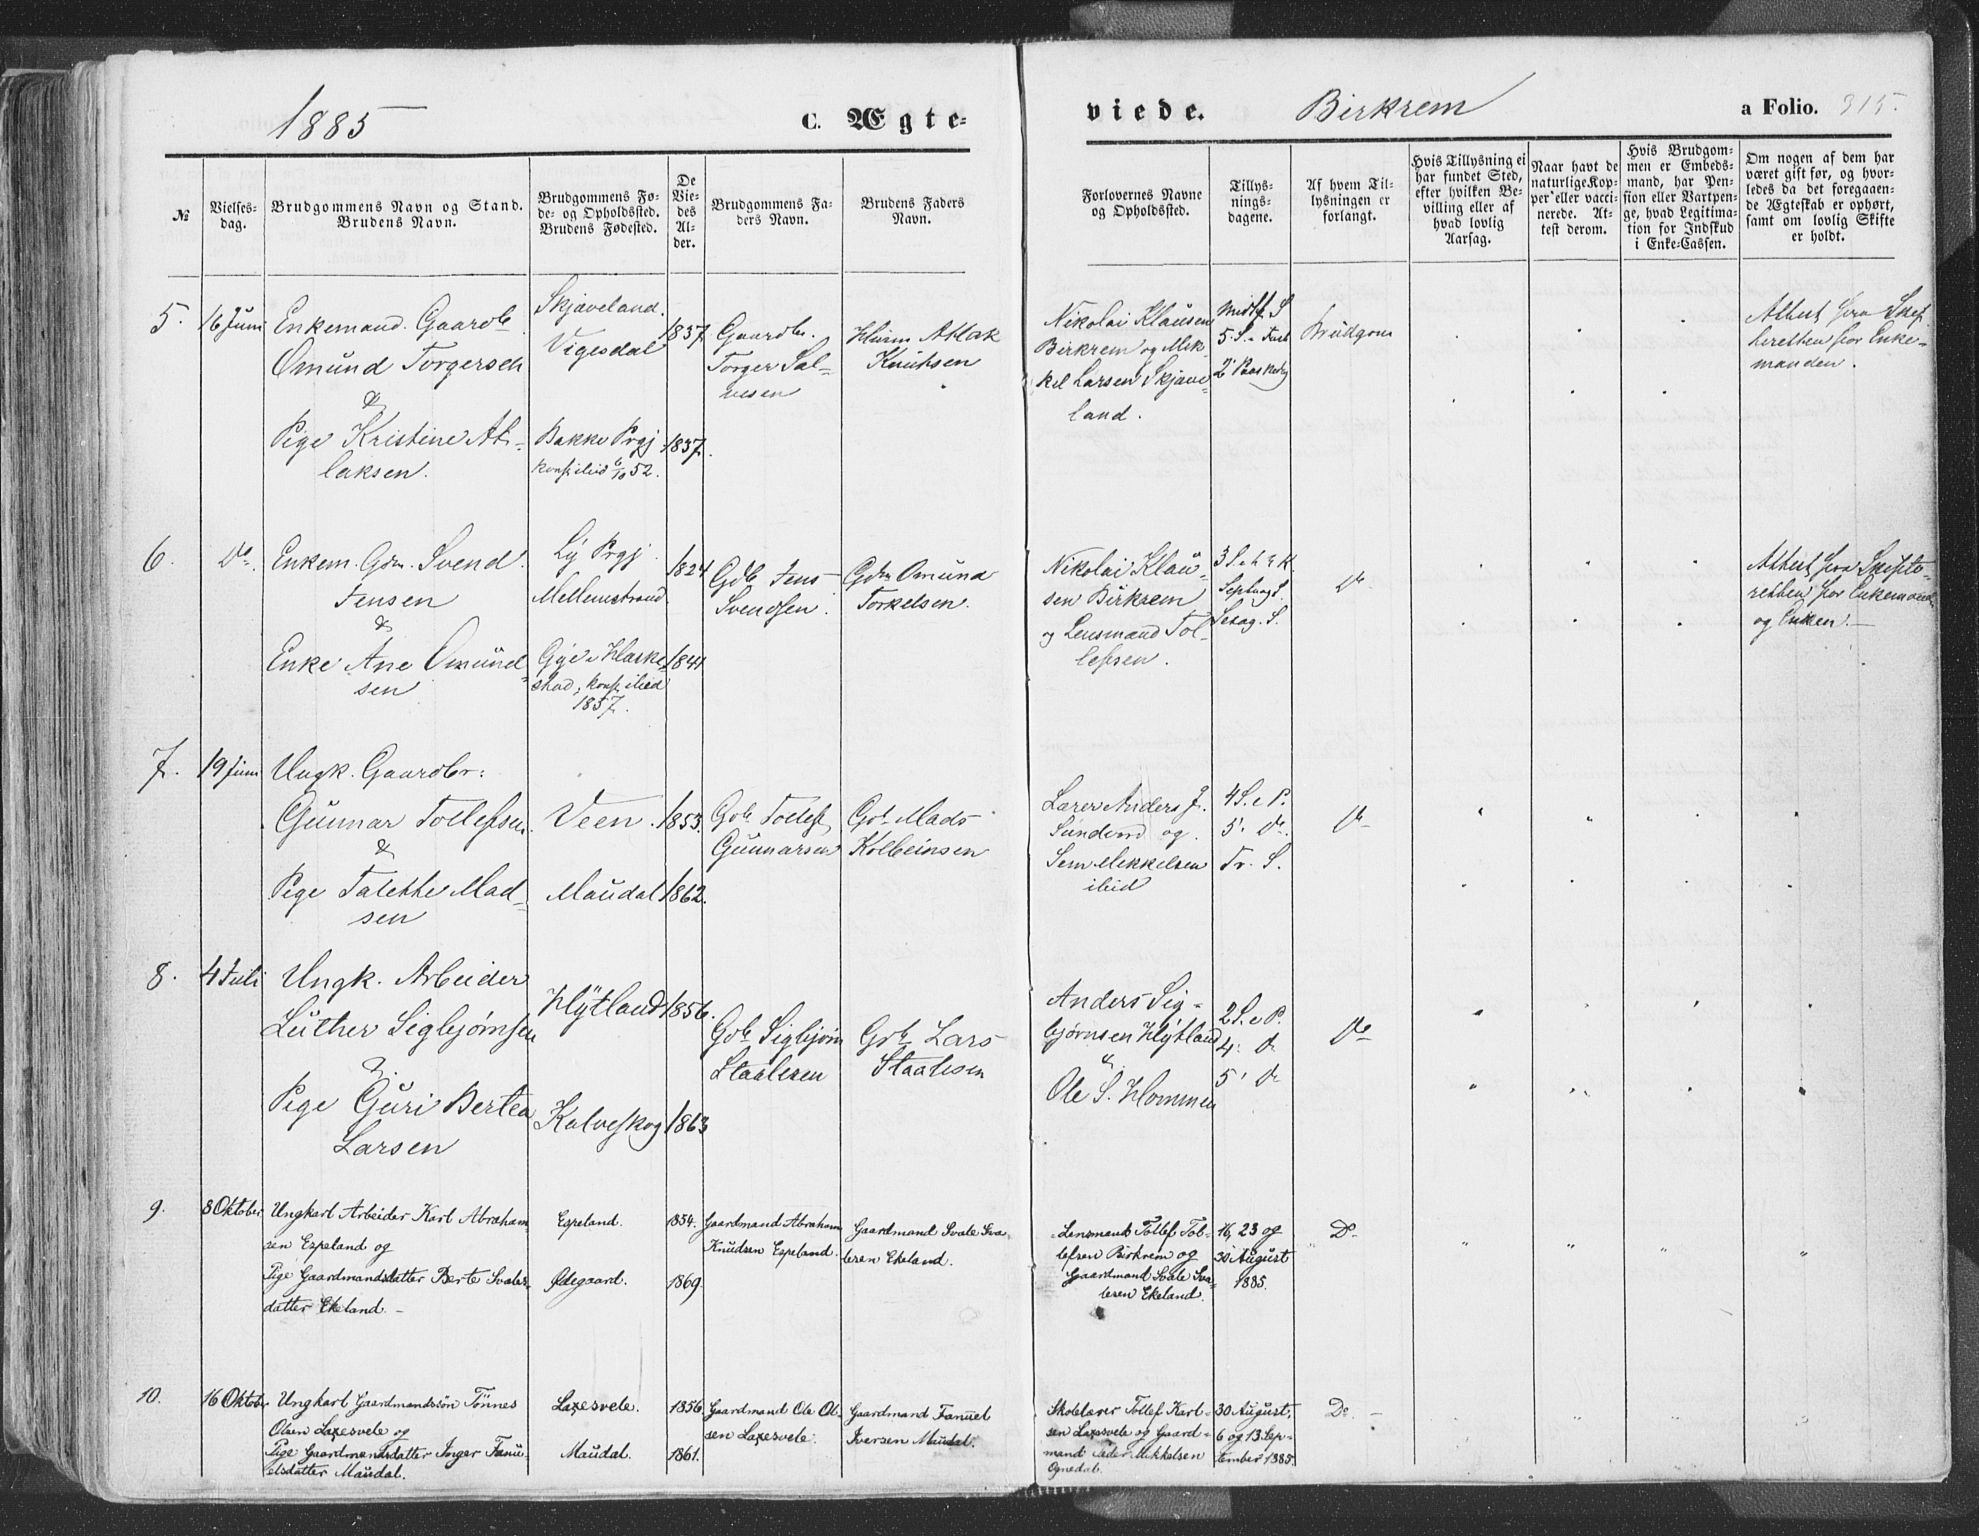 1885
C. Ægte-
viede.
Birkrem
a Folio. 315.
№
Vielses-
dag.
Brudgommens Navn og Stand.
Brudens Navn.
Brudgommens Fø-
de- og Opholdssted.
Brudens Fødested.
De
Vie-
des
Al-
der.
Brudgommens Fa-
ders Navn.
Brudens Faders
Navn.
Forlovernes Navne
og Opholdssted.
Tillys-
nings-
dagene.
Af hvem Til-
lysningen er
forlangt.
Hvis Tillysning ei
har fundet Sted,
efter hvilken Be-
villing eller af
hvad lovlig
Aarsag.
Naar havt de
naturlige Kop-
per eller vacci-
nerede. At-
test derom.
Hvis Brudgom-
men er Embeds-
mand, har Pen-
sion eller Vartpen-
ge, hvad Legitima-
tion for Indskud
i Enke-Cassen.
Om nogen af dem har
været gift før, og hvor-
ledes da det foregaaen-
de Ægteskab er ophørt,
samt om lovlig Skifte
er holdt.
5.
16 Juni
Enkemand. Gaardb.
Omund Torgersen
&
Pige Kristine At-
laksen.
Skjæveland.
Vigesdal
Bakke Prgj
1837
1837.
Gaardbr.
Torger Sal-
vesen
Atlak
Knutsen
Nikolai Klausen
Birkrem og Mik-
kel Larsen Skjæve-
land.
Brudgom
Attest fra Skif-
teretten for Enke-
manden.
6.
Do.
Enkem. Gdm. Svend
Jensen
&
Enke Ane Omund-
sen
Ly Prgj.
Mellemstrand
1857.
1824
1841
Gdb Jens
Svendsen.
Gdm Omund
Torkelsen.
Nikolai Klau-
sen Birkrem
og Lensmand Tol-
lefsen.
Septuag S.
Sexag. S.
Do
Attest fra Skifte-
retten for Enkemand
og Enken.
7.
19 Juni
Ungk. Gaardbr:
Gunnar Tollefsen
&
Pige Talette Mad-
sen
Veen.
Maudal
1853.
1862.
Gdb. Tollef
Gunnarsen
Gdb. Mads
Kolbeinsen
Lærer Anders J.
Sundvor og
Sem Mikkelsen
ibid
4 S. e P.
5. Do.
Tr. S.
Do
8.
4 Juli
Ungk. Arbeider
Luther Sigbjørnsen
&
Pige Guri Bertea
Larsen
Hytland
Kalveskog
1856.
1863
Gdb Sigbjørn
Staalesen
Gdb Lars
Staalesen
Anders Sig-
bjørnsen Hytland
&
Ole S. Hommen
2 S. e P.
4. Do
5. Do
Do
9.
8 Oktober
Ungkarl Arbeider Karl Abraham-
sen Espeland og
Pige Gaardmandsdatter Berte Svales-
datter Ekeland.
Espeland.
Ødegaard.
1854.
1869.
Gaardmand Abraham
Knudsen Espeland.
Gaardmand Svale Sva-
lesen Ekeland.
Lensmand Tollef Tol-
lefsen Birkrem og
Gaardmand Svale Sva-
lesen Ekeland.
16, 23 og
30 August
1885.
Do
10.
16 Oktober
Ungkarl Gaardmandssøn Tønnes
Olsen Laxesvele og
Pige Gaardmandsdatter Inger Fanu-
elsdatter Maudal.
Laxesvele.
Maudal.
1856.
1861.
Gaardmand Ole Ol-
sen Laxesvele.
Gaardmand Fanuel
Iversen Maudal.
Skolelærer Tollef Karl-
sen Laxesvele og Gaard-
mand Peder Mikkelsen
Ognedal.
30 August,
6 og 13 Sep-
tember 1885.
Do.